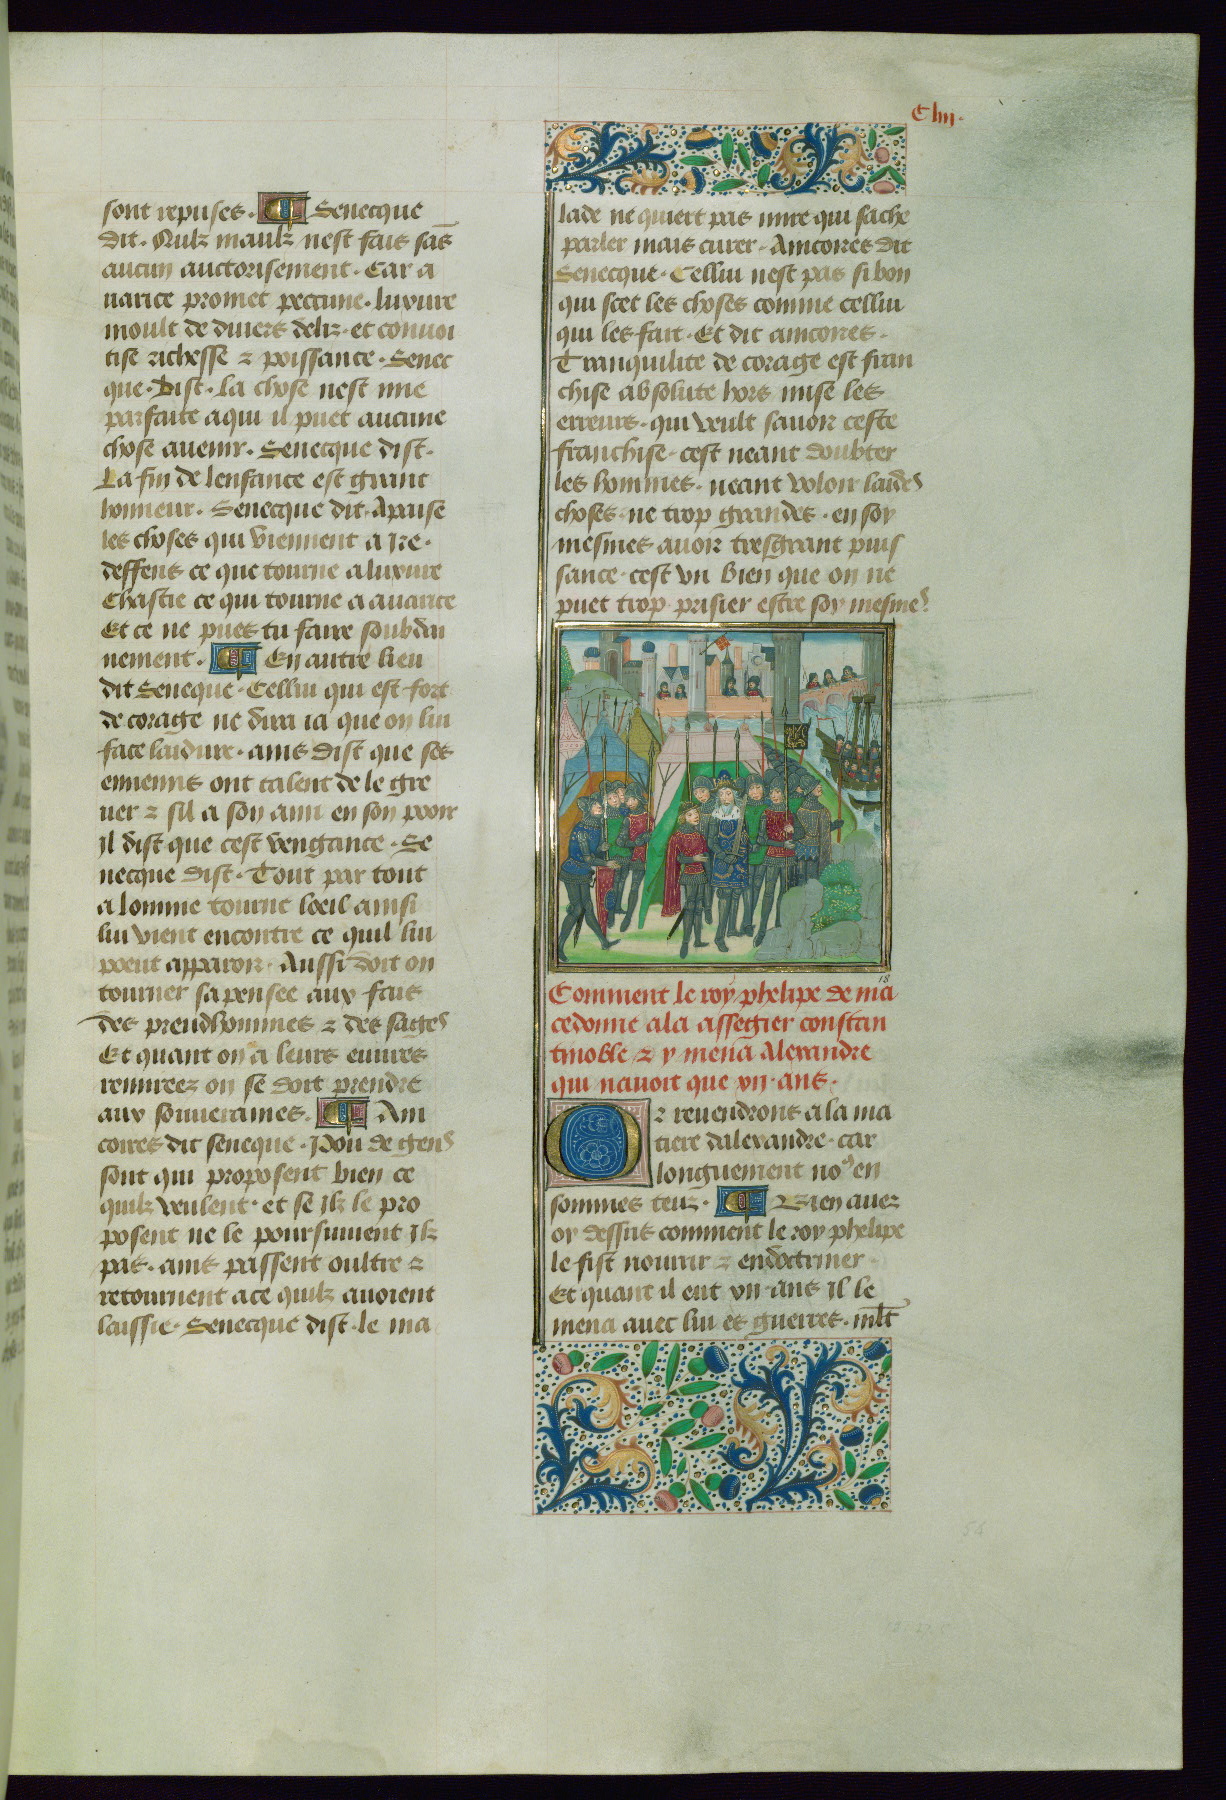 Clııȷ.
sont repuses. Senecque
dit. Nulz maulz nest fais sãs
aucun auctorisement. Car a
uarice promet peccune. luxure
moult de diuers deliz. et conuoi
tise richesse ⁊ poissance. Senec
que. Dist. La chose nest mie
parfaite a qui il puet aucune
chose auenir. Senecque dist.
La fin de lenfance est grant
honneur. Senecque dit. Apaise
les choses qui viennent a ire.
deffens ce que tourne a luxure
Chastie ce qui tourne a auarice
Et ce ne pues tu faire soubdai
nement. En autre lieu
dit Seneque. Cellui qui est fort
de corage ne dira ia que on lui
face laidure. ains dist que ses
ennemis ont talent de le gre
uer ⁊ sil a son ami en son pooir
il dist que cest vengance. Se
necque dist. Tout par tout
a lomme tourne loeil ainsi
lui vient encontre ce quil lui
poeut apparoir. Aussi doit on
tourner sa pensee aux fais
des preudhommes ⁊ des sages
Et quant on a leurs euures
remirees on se doit prendre
aux souueraines. Ain
coires dit seneque. Pou de gens
sont qui proposent bien ce
quilz veulent. et se ilz le pro
posent ne le poursuiuent ilz
pas. ains passent oultre ⁊
retournent a ce quilz auoient
laissie. Senecque dist. le ma
lade ne quiert pas mire qui sache
parler mais curer. Aincores dit
Senecque. Cellui nest pas si bon
qui scet les choses comme cellui
qui les fait. Et dit aincores.
Tranquilite de corage est fran
chise absolute hors mise les
erreurs. qui veult sauoir ceste
franchise. cest neant doubter
les hommes. neant voloir laides
choses. ne trop grandes. en soy
mesmes auoir tresgrant puis
sance. cest vn bien que on ne
puet trop prisier estre soy mesmes
18
Comment le roy phelipe de ma
cedonne ala assegier constan
tinoble ⁊ y mena Alexandre
qui nauoit que vıı. ans.
Or reuendrons a la ma
tiere dalexandre. car
longuement no9 en
sommes teuz. Bien auez
oy dessus comment le roy phelipe
le fist nourrir ⁊ endoctriner
Et quant il eut vıı. ans il le
mena auec lui es guerres. mlt̃